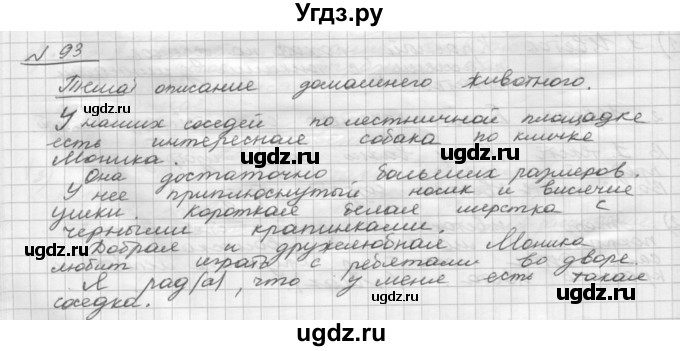 Угдз.ру
№ 93
Тема: описание домашнего животного.
угдз.ру
У наших соседей по лестничной площадке
есть интересная собака по кличке
Моника.
угдз.ру
угдз.ру
Она достаточно больших размеров.
У нее приплюснутый носик и висячие
угдз.ру
ушки. Короткая белая шерстка с
черными крапинками.
угдз.ру
Добрая и дружелюбная Моника
любит играть с ребятами во дворе.
угдз.ру
Я рад(а), что у меня есть такая
соседка.
угдз.ру
угдз.ру
Угдз.ру